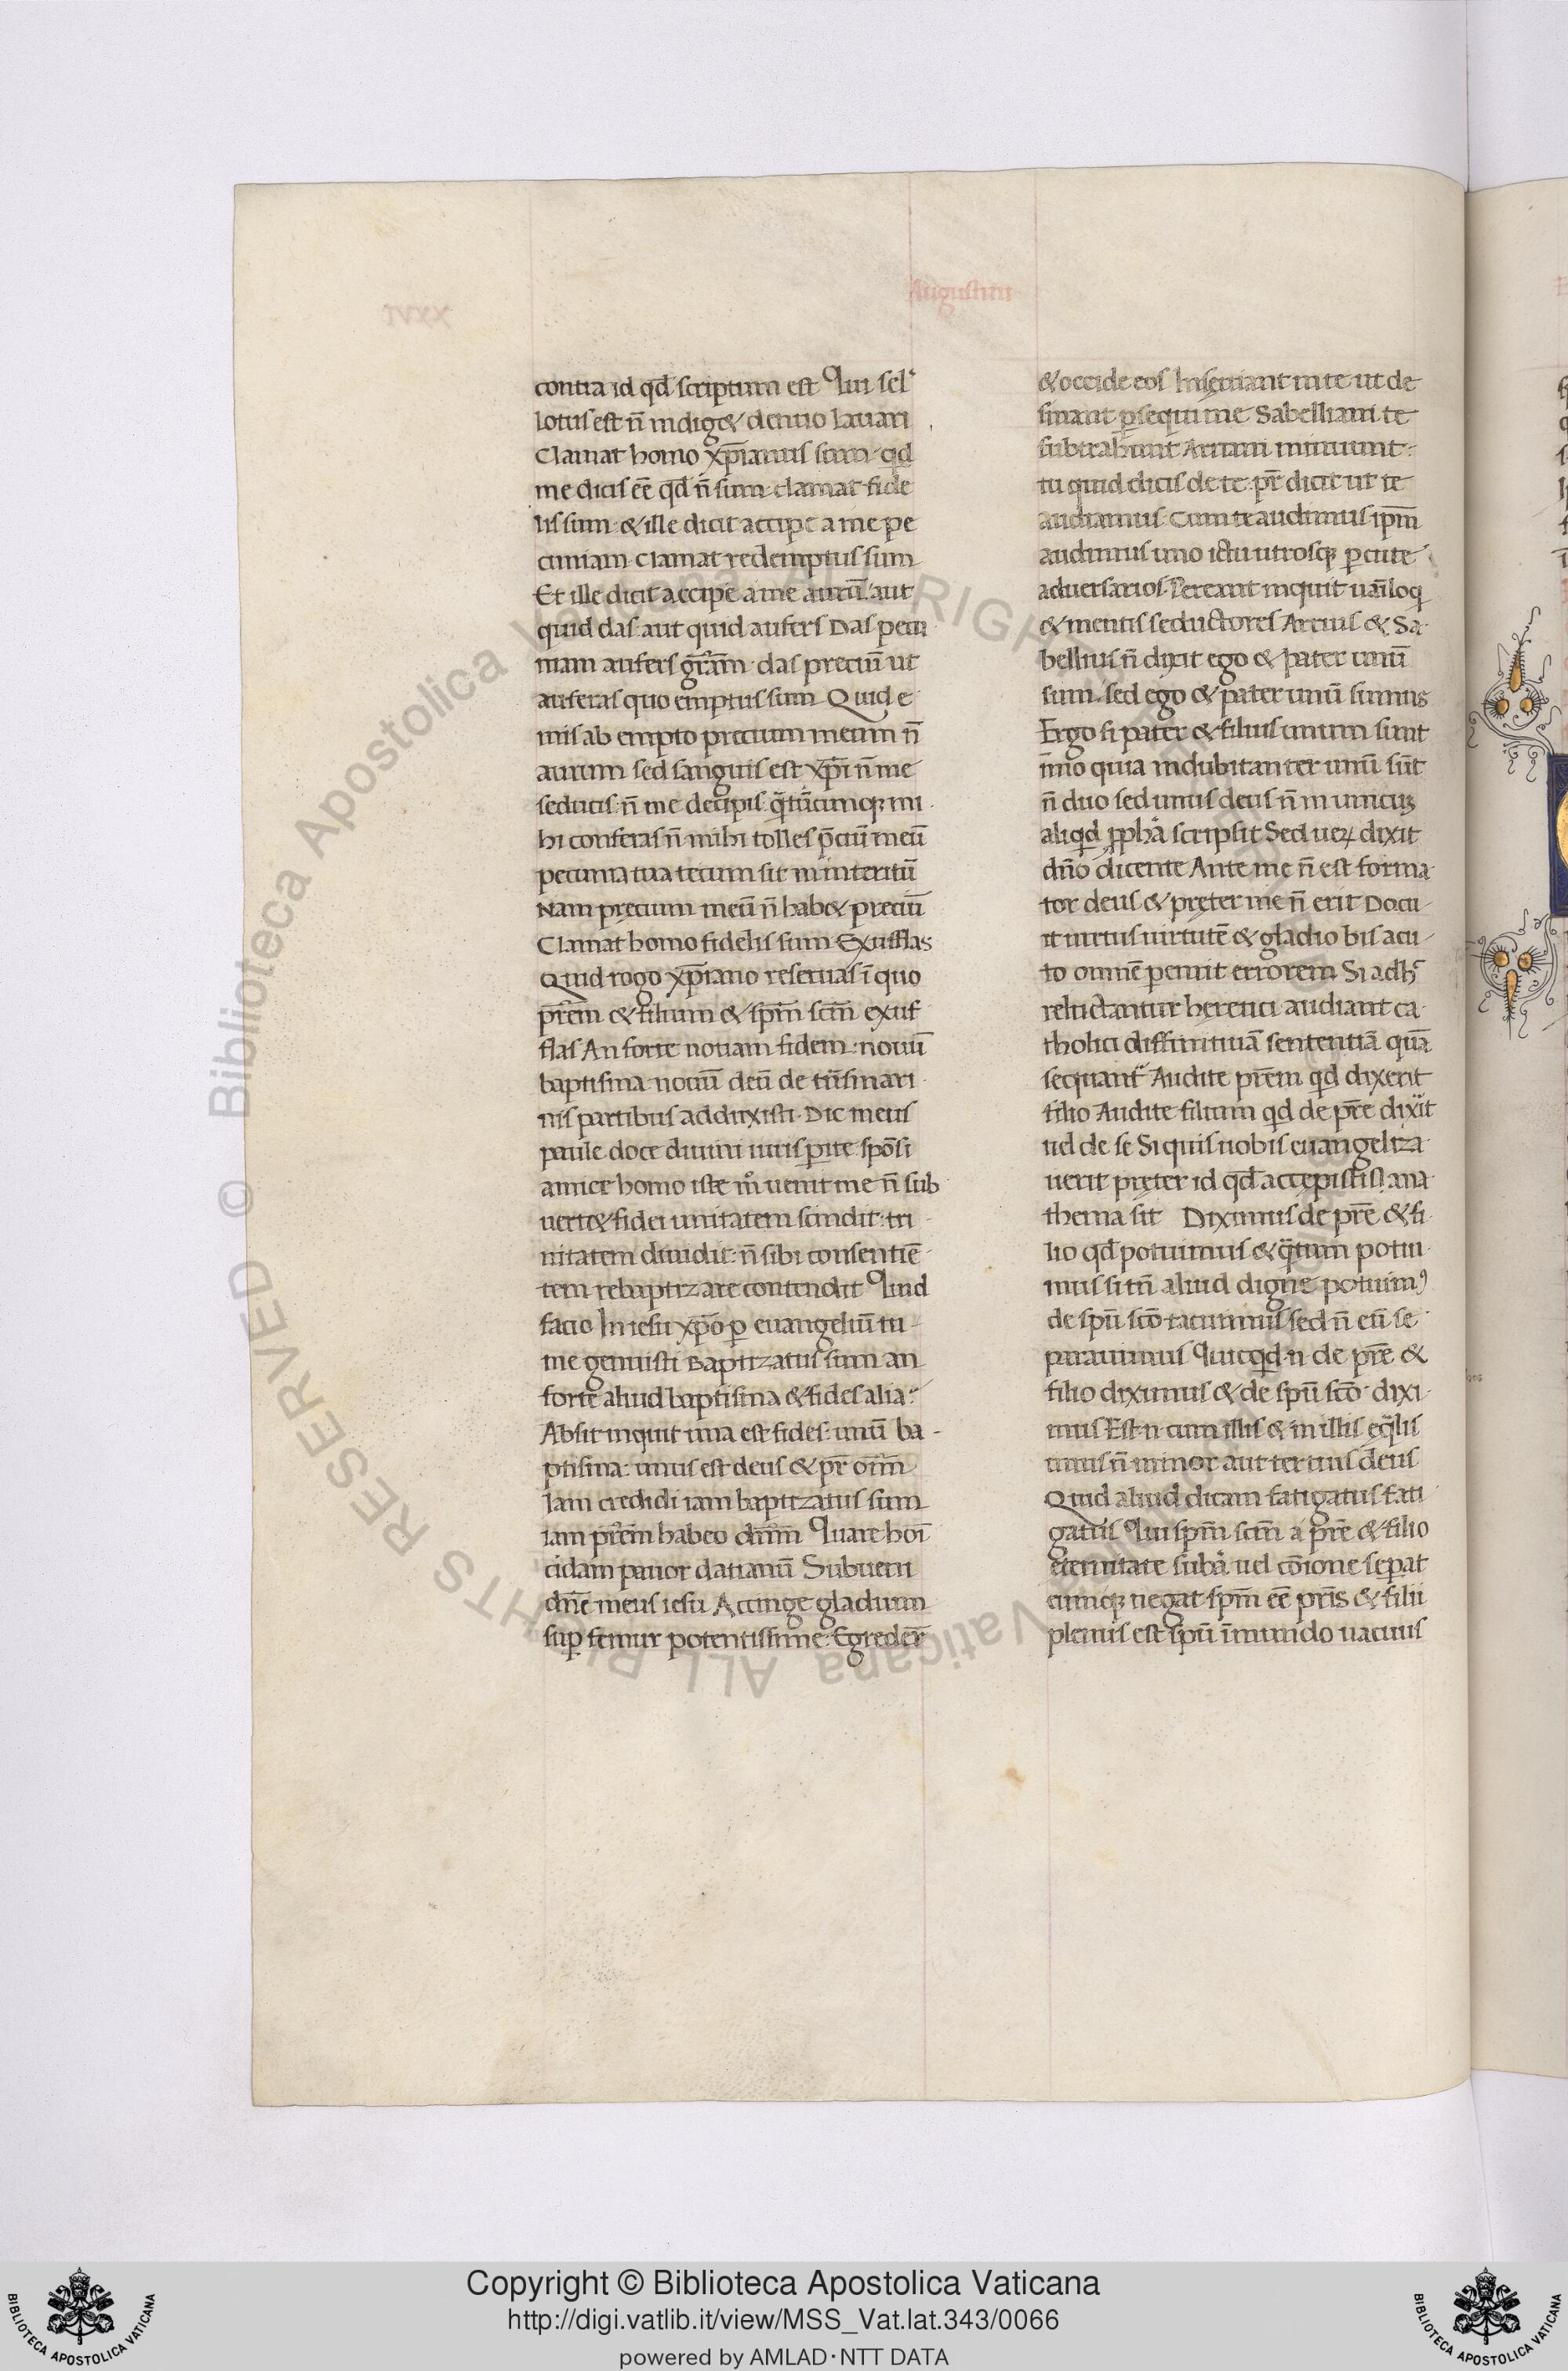 Augustini
contra id qđ scriptum est Qui sel̕
lotus est n̄ indig& denuo lauari
Clamat homo xp̄ianus sum qd
me dicis eē qđ n̄ sum clamat fide
lis sum & ille dicit accipe a me pe
cuniam Clamat redemptus sum
Et ille dicit accipe a me aurū aut
quid das aut quid aufers Das pecu
niam aufers gr̄am das preciū ut
auferas quo emptus sum Quid e
mis ab empto precium meum n̄
aurum sed sanguis est xp̄i n̄ me
seducis n̄ me decipis q̄tūcumq; mi
hi conferas n̄ mihi tolles p̄ciū meū
pecunia tua tecum sit in interitū
Nam pręcium meū n̄ hab& preciū
Clamat homo fidelis sum Exufflas
Quid rogo xp̄iano reseruas ī quo
pr̄em & filium & sp̄m sc̄m exuf
flas An forte nouam fidem nouū
baptisma nouū deū de tn̄smari
nis partibus adduxisti Dic meus
paule doce diuini iuris perite spōsi
amice homo iste m̊ uenit me n̄ sub
uert& fidei unitatem scindit tri
nitatem diuidit n̄ sibi consentiē
tem rebaptizare contendit Quid
facio In iesu xp̄o p̱ euangeliū tu
me genuisti Baptizatus sum an
forte aliud baptisma & fides alia
Absit inquit una est fides unū ba
ptisma unus est deus & pr̄ om̄
Iam credidi iam baptizatus sum
iam pr̄em habeo dn̄m Quare hoī
cidam patior datianū Subueni
dn̄e meus iesu Accinge gladium
sup̱ femur potentissime Egreder̄
& occide eos Inseuiant in te ut de
sinant p̱sequi me Sabelliani te
subtrahunt Arriani minuunt
tu quid dicis de te pr̄ dicit ut te
audiamus Cum te audimus ip̄m
audimus uno ictu utrosq; p̱cute
aduersarios Pereant inquit uan̄loq
& mentis seductores Arrius & Sa
bellius n̄ dixit ego & pater unū
sum sed ego & pater unū sumus
Ergo si pater & filius unum sunt
īmo quia indubitanter unū sūt
n̄ duo sed unus deus n̄ inunicus
aliqd pp̄ha scripsit Sed ueꝝ dixit
dn̄o dicente Ante me n̄ est forma
tor deus & pręter me n̄ erit Docu
it uirtus uirtutē & gladio bis acu
to omnē pemit errorem Si adh̄
reluctantur hęretici audiant ca
tholici diffinitiuā sententiā quā
sequant Audite pr̄em qd dixerit
filio Audite filium qd de pr̄e dixit
uel de se Si quis uobis euangeliza
uerit pręter id qđ accepistis ana
thema sit Diximus de pr̄e & fi
lio qđ potuimus & q̄tum potui
mus si tn̄ aliud digne potuimꝰ
de spū scō tacuimus sed n̄ eū se
parauimus Quicqd n̄ de pr̄e &
filio diximus & de spū scō dixi
mus Est n̄ cum illis & in illis ęqlis
unus n̄ minor aut tertius deus
Quid aliud dicam fatigatus fati
gatis Qui sp̄m sc̄m a pr̄e & filio
eternitate suba uel cōione sep̱at
cumq; negat sp̄m eē pr̄is & filii
plenus est spū īmundo uacuus
© Biblioteca Apostolica Vaticana ALL RIGHTS RESERVED
Copyright © Biblioteca Apostolica Vaticana
http://digi.vatlib.it/view/MSS_Vat.lat.343/0066
powered by AMLAD·NTT DATA
BIBLIOTECA APOSTOLICA VATICANA
BIBLIOTECA APOSTOLICA VATICANA